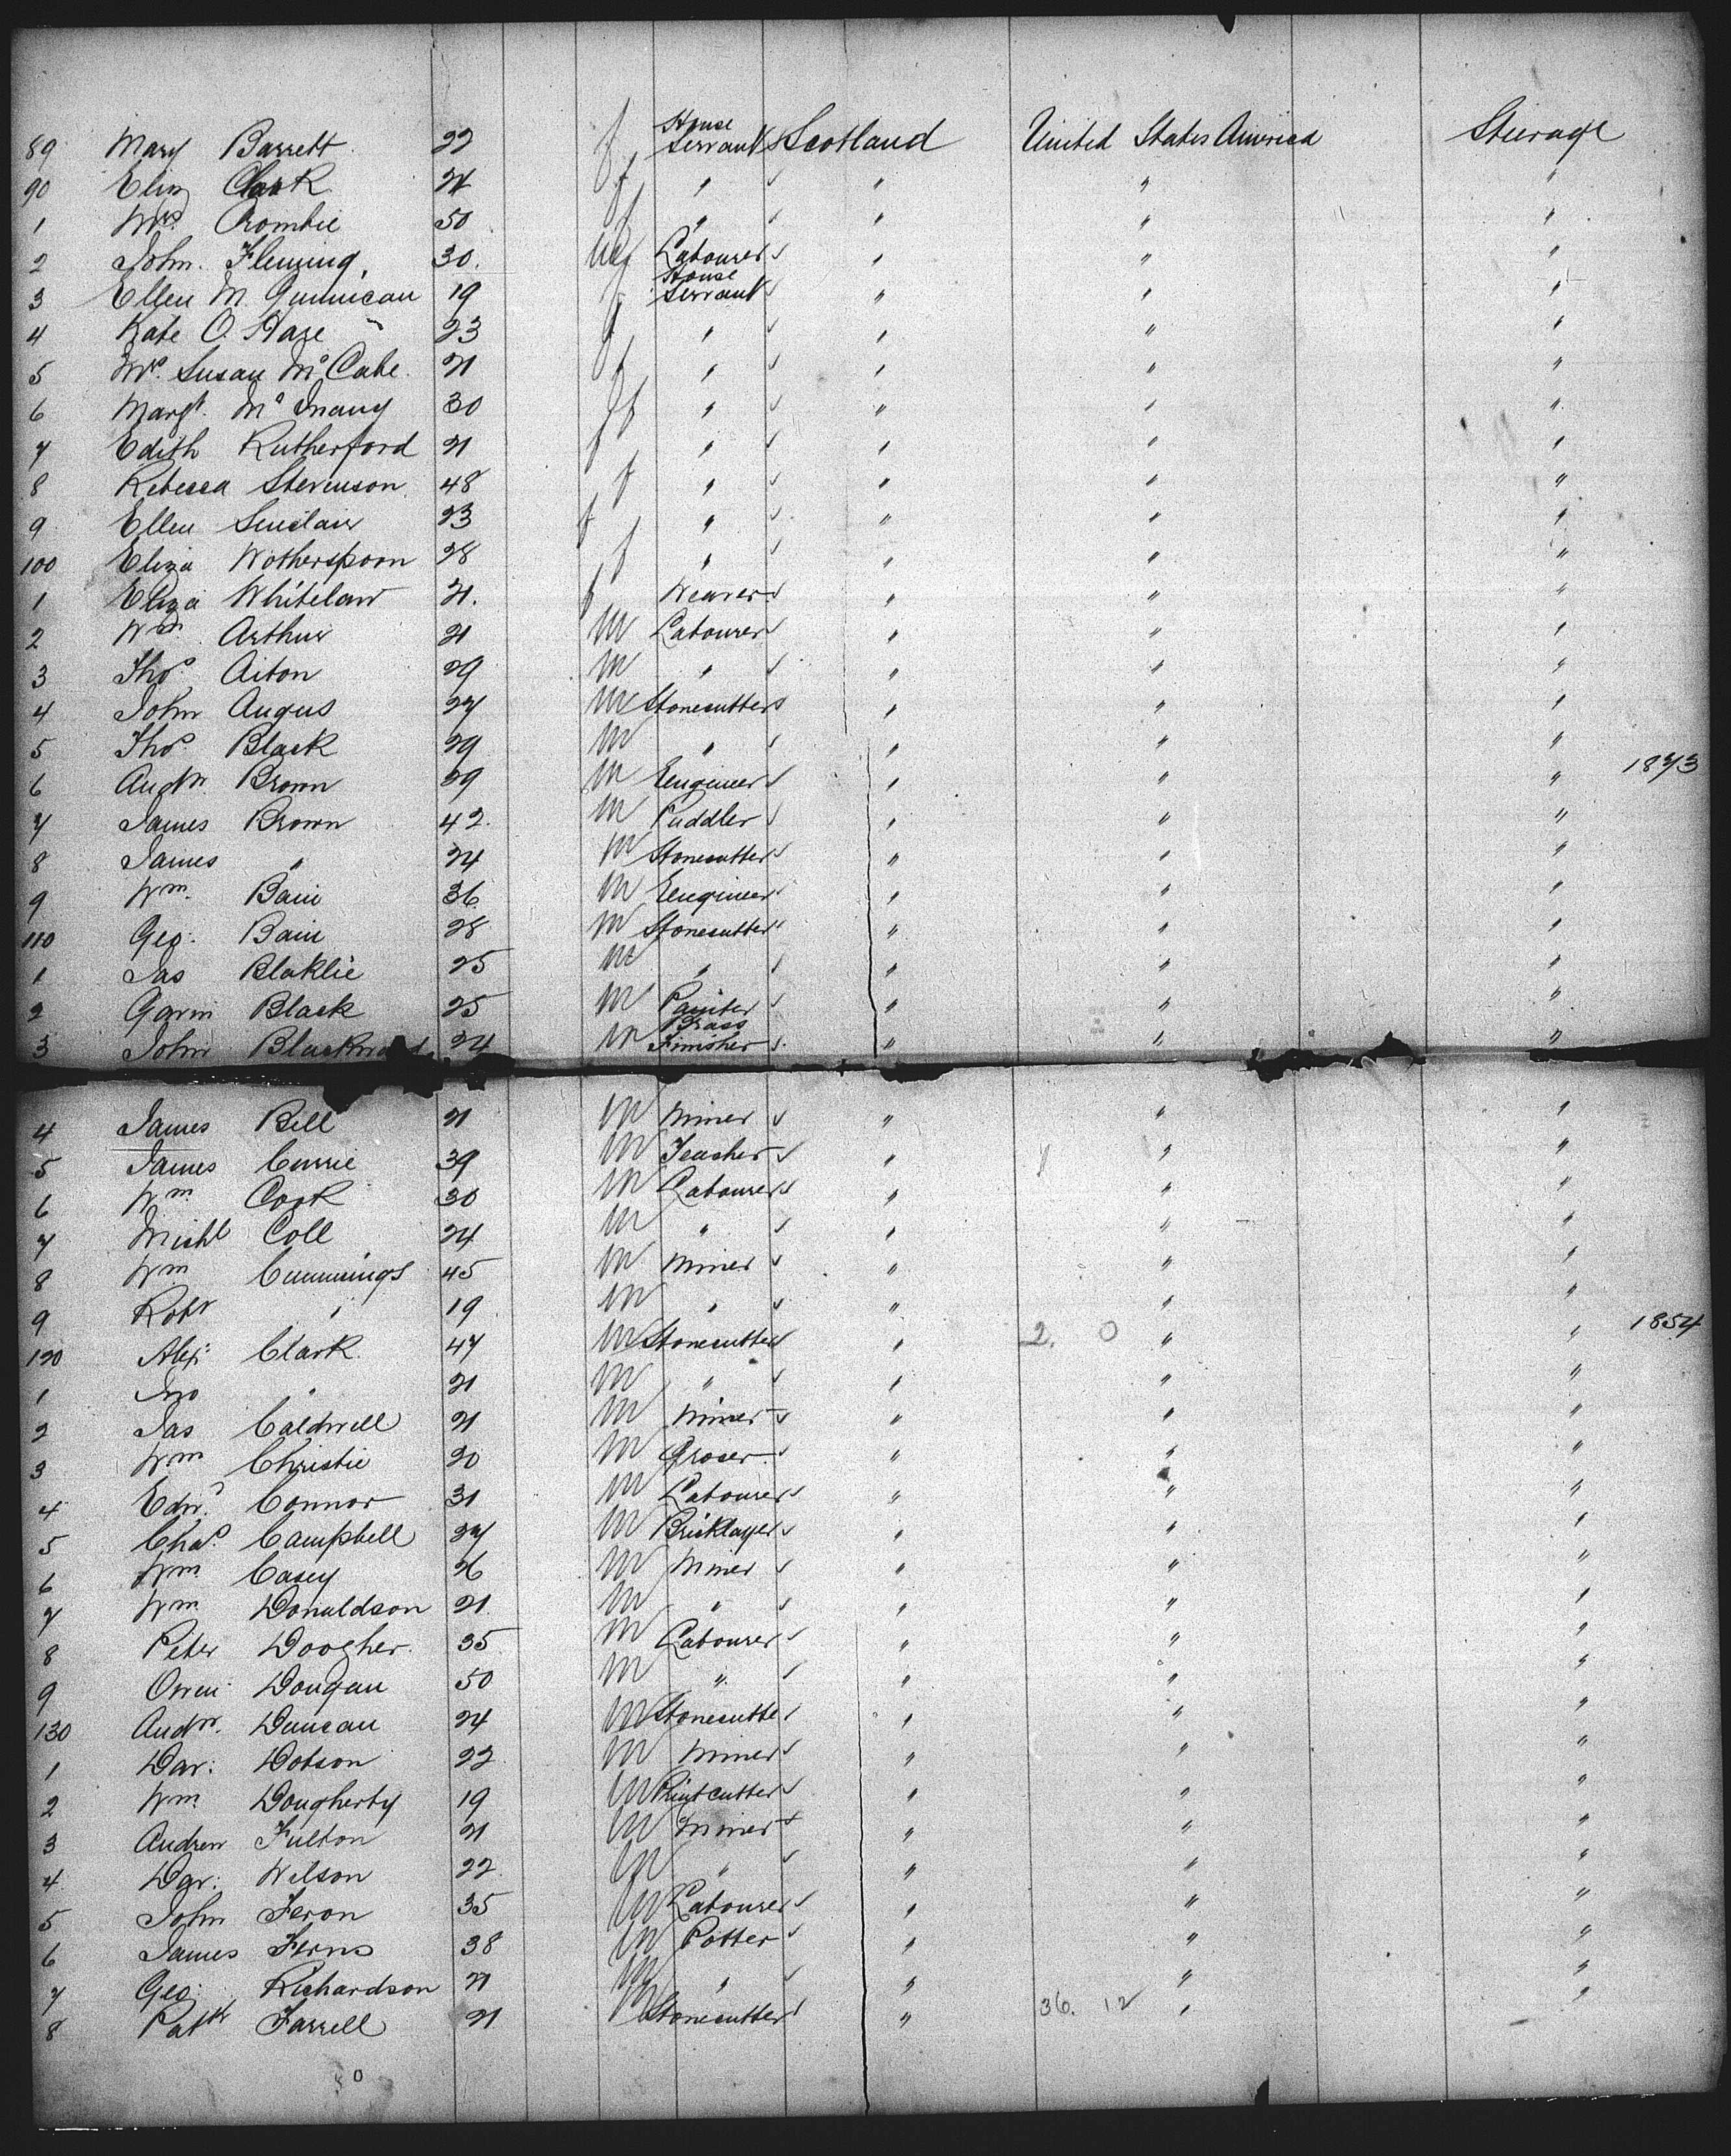 89 Mary Barrett 22 f House Servant Scotland United States America Steerage
90 Eliz Clark 24 f " " " "
1 Mrs Crombie 50 f " " " "
2 John Fleming 30 Labourer " " "
3 Ellen M Guinican 19 f House Servant " " "
4 Kate O. Hare 23 f " " " "
5 Mrs. Susan McCabe 21 f " " " "
6 Margt. Mc 30 f " " " "
7 Edith Rutherford 21 f " " " "
8 Rebecca Stevenson 48 f " " " "
9 Ellen Sinclair 23 f " " " "
100 Eliza Wotherspoon 28 f " " " "
1 Eliza Whitelaw 21. f Weaver " " "
2 Wm Arthur 21 m Labourer " " "
3 Thos Aiton 29 m " " " "
4 John Angus 27 m Stonecutter " " "
5 Thos Black 29 m " " " "
6 Andw. Brown 29 m Engineer " " " 1873
7 James Brown 42 m Puddler " " "
8 James " 24 m Stonecutter " " "
9 Wm. Bain 36 m Engineer " " "
110 Geo: Bain 28 m Stonecutter " " "
1 Jas Blaklie 25 m " " " "
2 Gavin Black 25 m Painter " " "
3 John 24 m Brass Finisher " " "
4 James Bell 21 m Miner " " "
5 James Currie 39 m Teacher " " "
6 Wm Cook 30 m Labourer " " "
7 Michl Coll 24 m " " " "
8 Wm Cummings 45 m Miner " " "
9 Robt " 19 m " " " "
120 Alex: Clark 47 m Stonecutter " 2. 0 " " 1854
1 Jno " 21 m " " " "
2 Jas Caldwell 21 m Miner " " "
3 Wm Christie 20 m Groser " " "
4 Edwd. Connor 31 m Labourer " " "
5 Chas. Campbell 37 m Bricklayer " " "
6 Wm Casey 26 m Miner " " "
7 Wm Donaldson 21 m " " " "
8 Peter Doogher 35 m Labourer " " "
9 Owen Dougan 50 m " " " "
130 Andw. Duncan 24 m Stonecutter " " "
1 Dav: Dobson 22 m Miner " " "
2 Wm Dougherty 19 m Printcutter " " "
3 Andrew Fulton 21 m Miner " " "
4 Dav: Wilson 22 m " " " "
5 John Feron 35 m Labourer " " "
6 James Ferns 38 m Potter " " "
7 Geo: Richardson 21 m " " " "
8 Patk Farrell 21 m Stonecutter " 36. 12 " "
0